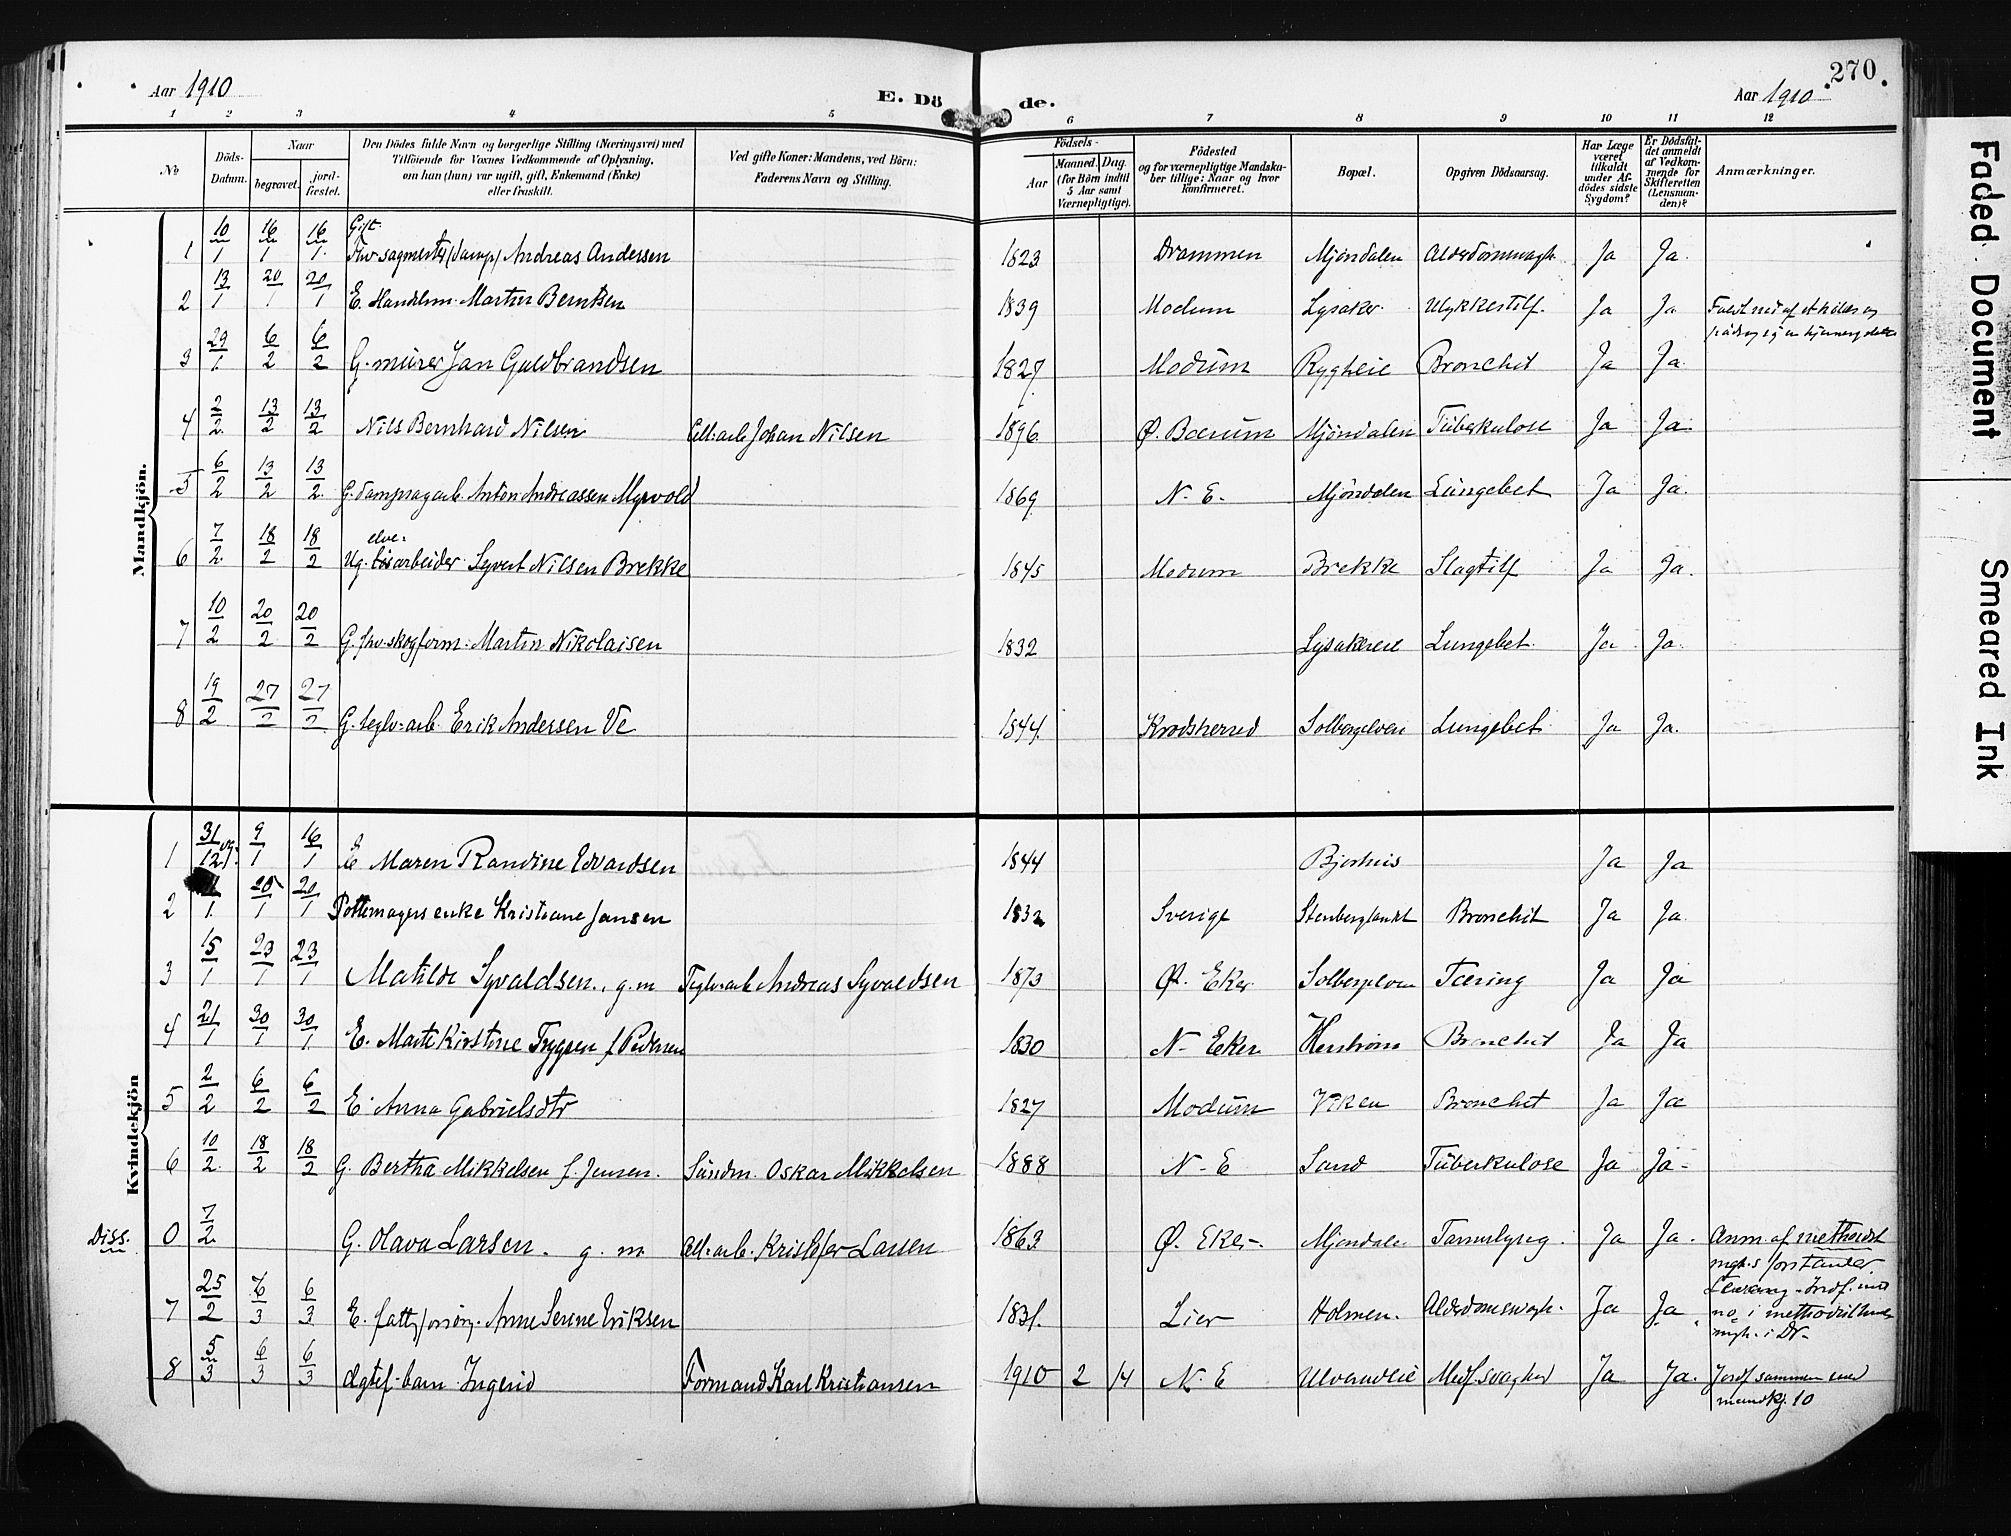 Aar 1910
E. Dö
de.
Aar 1910.
270.
1 2 3 4 5 6 7 8 9 10 11 12
No
Döds-
Datum.
Naar
begravet.
jord-
fæstet.
Den Dödes fulde Navn og borgerlige Stilling (Næringsvei) med
Tilföiende for Voxnes Vedkommende af Oplysning,
om han (hun) var ugift, gift, Enkemand (Enke)
eller fraskilt.
Ved gifte Koner: Mandens, ved Börn:
Faderens Navn og Stilling.
Födsels-
Aar
Maaned. Dag.
(for Börn indtil
5 Aar samt
Værnepligtige).
Födested
og for værnepligtige Mandska-
ber tillige: Naar og hvor
konfirmeret.
Bopæl.
Opgiven Dödsaarsag.
Har Læge
været
tilkaldt
under Af-
dödes sidste
Sygdom?
Er Dödsfal-
det anmeldt
af Vedkom-
mende for
Skifteretten
(Lensman-
den)?
Anmærkninger.
Mandkjön.
Gift.
1 10/1 16/1 16/1 Andreas Andersen 1823 Drammen Mjöndalen Ja Ja.
2 13/1 20/1 20/1 E. Handelsm. Martin Berntsen 1839 Modum Lysaker Ulykkestilf. Ja Ja
3 29/1 6/2 6/2 G. murer Jan Guldbrandsen 1827 Modum Rygheie Bronchit Ja Ja
4 2/2 13/2 13/2 Nils Bernhard Nilsen Cell.arb. Johan Nilsen 1896 Ø. Bærum Mjöndalen Tüberkulose Ja Ja
5 6/2 13/2 13/2 G. dampsagarb. Anton Andreassen Myrvold 1869 N. E. Mjöndalen Lüngebet. Ja Ja.
elve.
6 7/2 18/2 18/2 Ug. lösarbeider Syvert Nilsen Brekke 1845 Modum Brekke Slagtilf Ja Ja.
7 10/2 20/2 20/2 G. fhv. skogform. Martin Nikolaisen 1832 Lysakereie Lungebet. Ja Ja.
8 19/2 27/2 27/2 G. teglv.arb. Erik Andersen Ve 1844 Krodsherred Solbergelven Lungebet Ja Ja.
Kvindekjön
1 31/12 9/1 16/1 E Maren Randine Edvardsen 1844 Bjerhus Ja Ja
2 20/1 20/1 Pottemagers enke Kristiane Jansen 1832 Sverige Bronchit Ja Ja
3 15/1 23/1 23/1 Matilde Syvaldsen., g.m Teglv.arb Andreas Syvaldsen 1873 Ø. Eker Tæring Ja Ja
4 21/1 30/1 30/1 E. Marte Kirstine Trygsen f Pedersen 1830 N- Eker Bronchit Ja Ja
5 2/2 6/2 6/2 E. Anna Gabrielsdtr 1827 Modum Viken Bronchit Ja Ja
6 10/2 18/2 18/2 G. Bertha Mikkelsen f. Jensen. Oskar Mikkelsen 1888 N-E Sand Tüberkulose Ja Ja-
Diss. 0 7/2 G. Olava Larsen. g. m Cell.arb. Kristofer Larsen 1863 Ø. Eker- Mjöndalen Ja Ja. Anm. af methodist
mgh.s forstander
7 25/2 6/3 6/3 E. fattigforsörg. Anne Serine Eriksen 1831. Lier Holmen. Ja Ja
i methodist
mgh. i Dr-
8 5/3 6/3 6/3 ægtef.barn Ingerid Formand Karl Kristiansen 1910 2 14 N. E Ulvenveie Medf. svaghed Ja Ja. Jordf sammen med
mandkj. 10
Faded Document
Smeared Ink